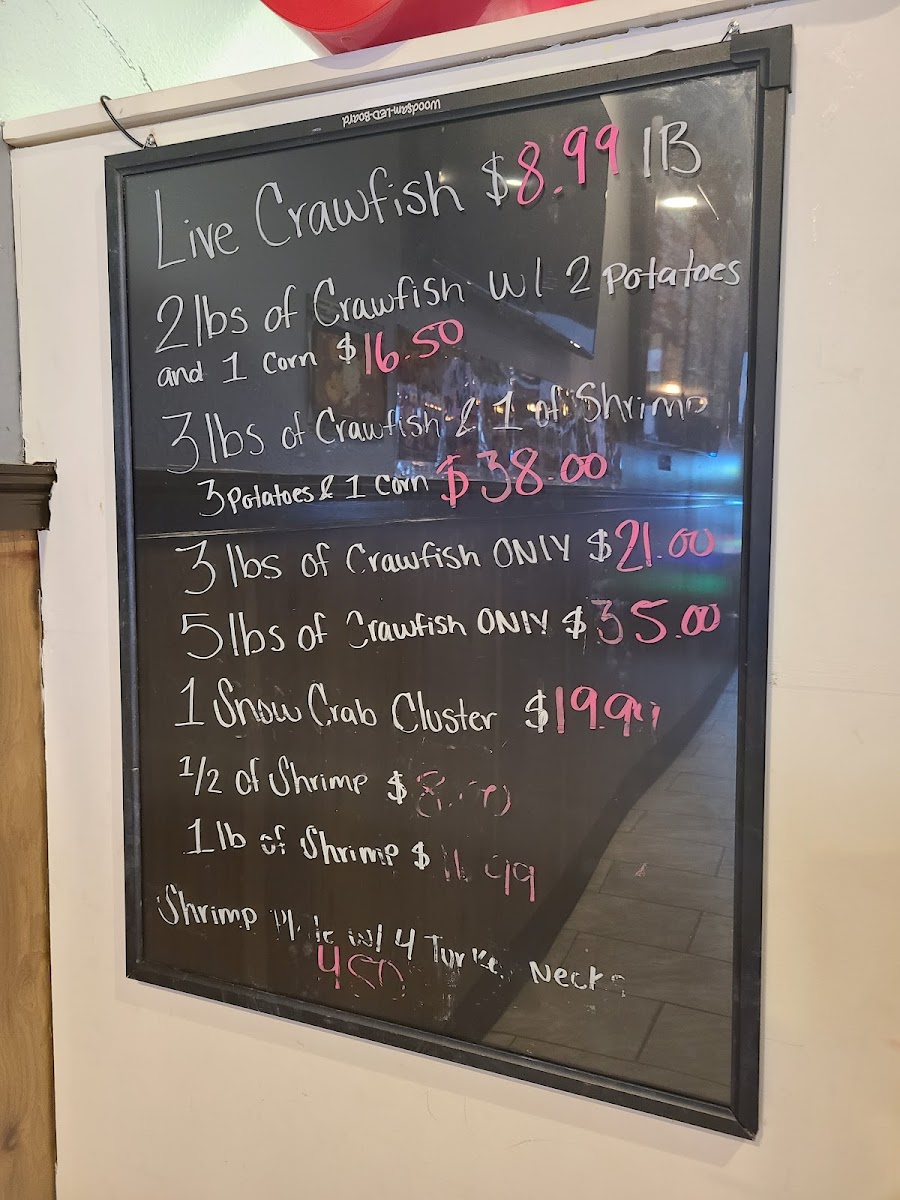 Woodsam-LED-Board
Live Crawfish $8.99 lB
2 lbs of Crawfish w/ 2 Potatoes
and 1 Corn $16.50
3 lbs of Crawfish & 1 of Shrimp
3 Potatoes & 1 Corn $38.00
3 lbs of Crawfish ONlY $21.00
5 lbs of Crawfish ONlY $35.00
1 Snow Crab Cluster $19.99
1/2 of Shrimp $
1 lb of Shrimp $11.99
Shrimp w/ 4 Turkey Necks